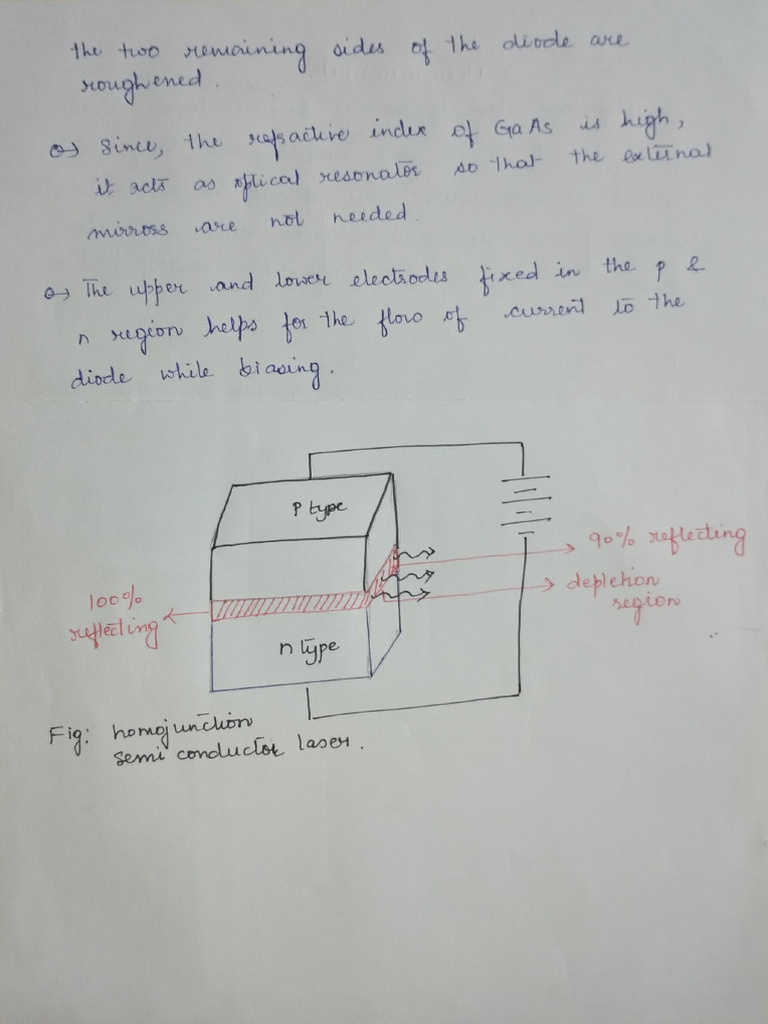 the two remaining sides of the diode are
roughened.
→ Since, the refractive index of GaAs is high,
it acts as optical resonator so that the external
mirrors are not needed.
→ The upper and lower electrodes fixed in the p &
n region helps for the flow of current to the
diode while biasing.
P type
90% reflecting
depletion
region
100%
reflecting
n type
Fig: homojunction
semi conductor laser.